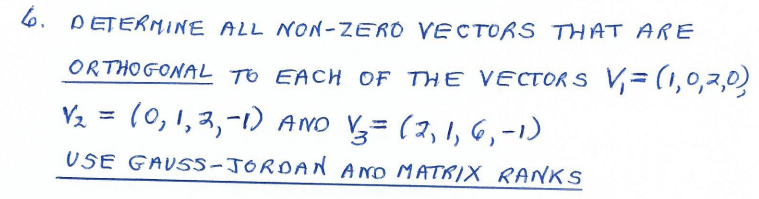 6. DETERMINE ALL NON-ZERO VECTORS THAT ARE
ORTHOGONAL TO EACH OF THE VECTORS V₁ = (1,0,2,0),
V₂ = (0,1,2,-1) AND V₃ = (2,1,6,-1)
USE GAUSS-JORDAN AND MATRIX RANKS